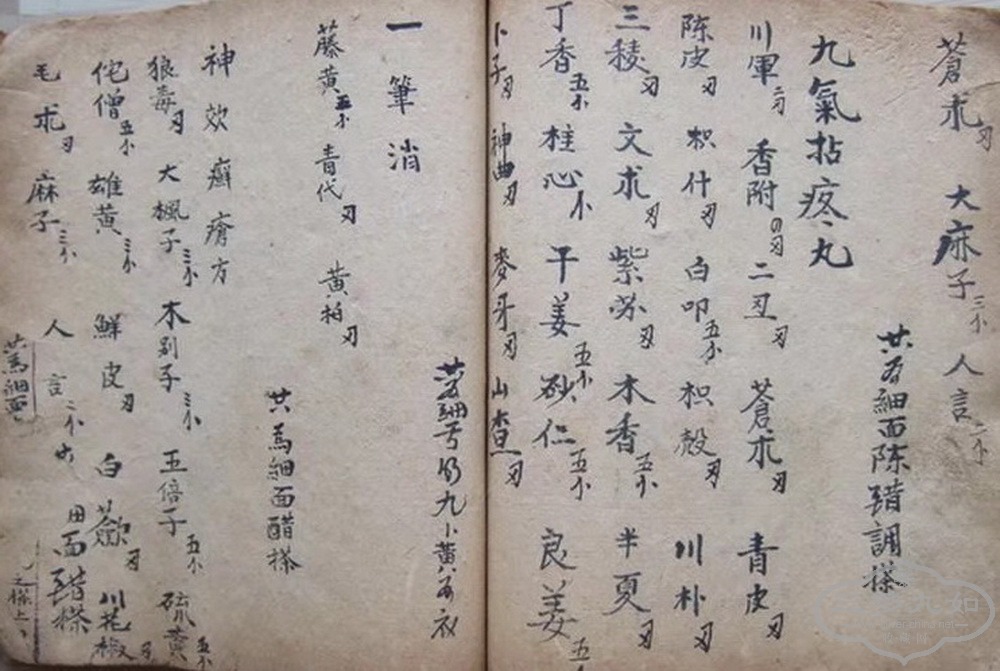 蒼朮刄 大麻子三小 人言二小
共为細面陈醋調搽
九氣拈疼丸
川軍二刄 香附四刄 二丑刄 蒼朮刄 青皮刄
陈皮刄 枳什刄 白叩五小 枳殼刄 川朴刄
三稜刄 文朮刄 紫苏刄 木香五小 半夏刄
丁香五小 桂心小 干姜五小 砂仁五小 良姜五小
卜子刄 神曲刄 麥牙刄 山查刄
九卜黄为衣
一筆消
藤黄五小 青代刄 黄柏刄
共為細面醋搽
神効癬瘡方
狼毒刄 大楓子三小 木别子三小 五倍子五小 硫黄五小
佗僧五小 雄黄三小 鮮皮刄 白蘞刄 川花椒刄
毛朮刄 麻子三小 人言二小
共為細面
用 醋搽
之搽上